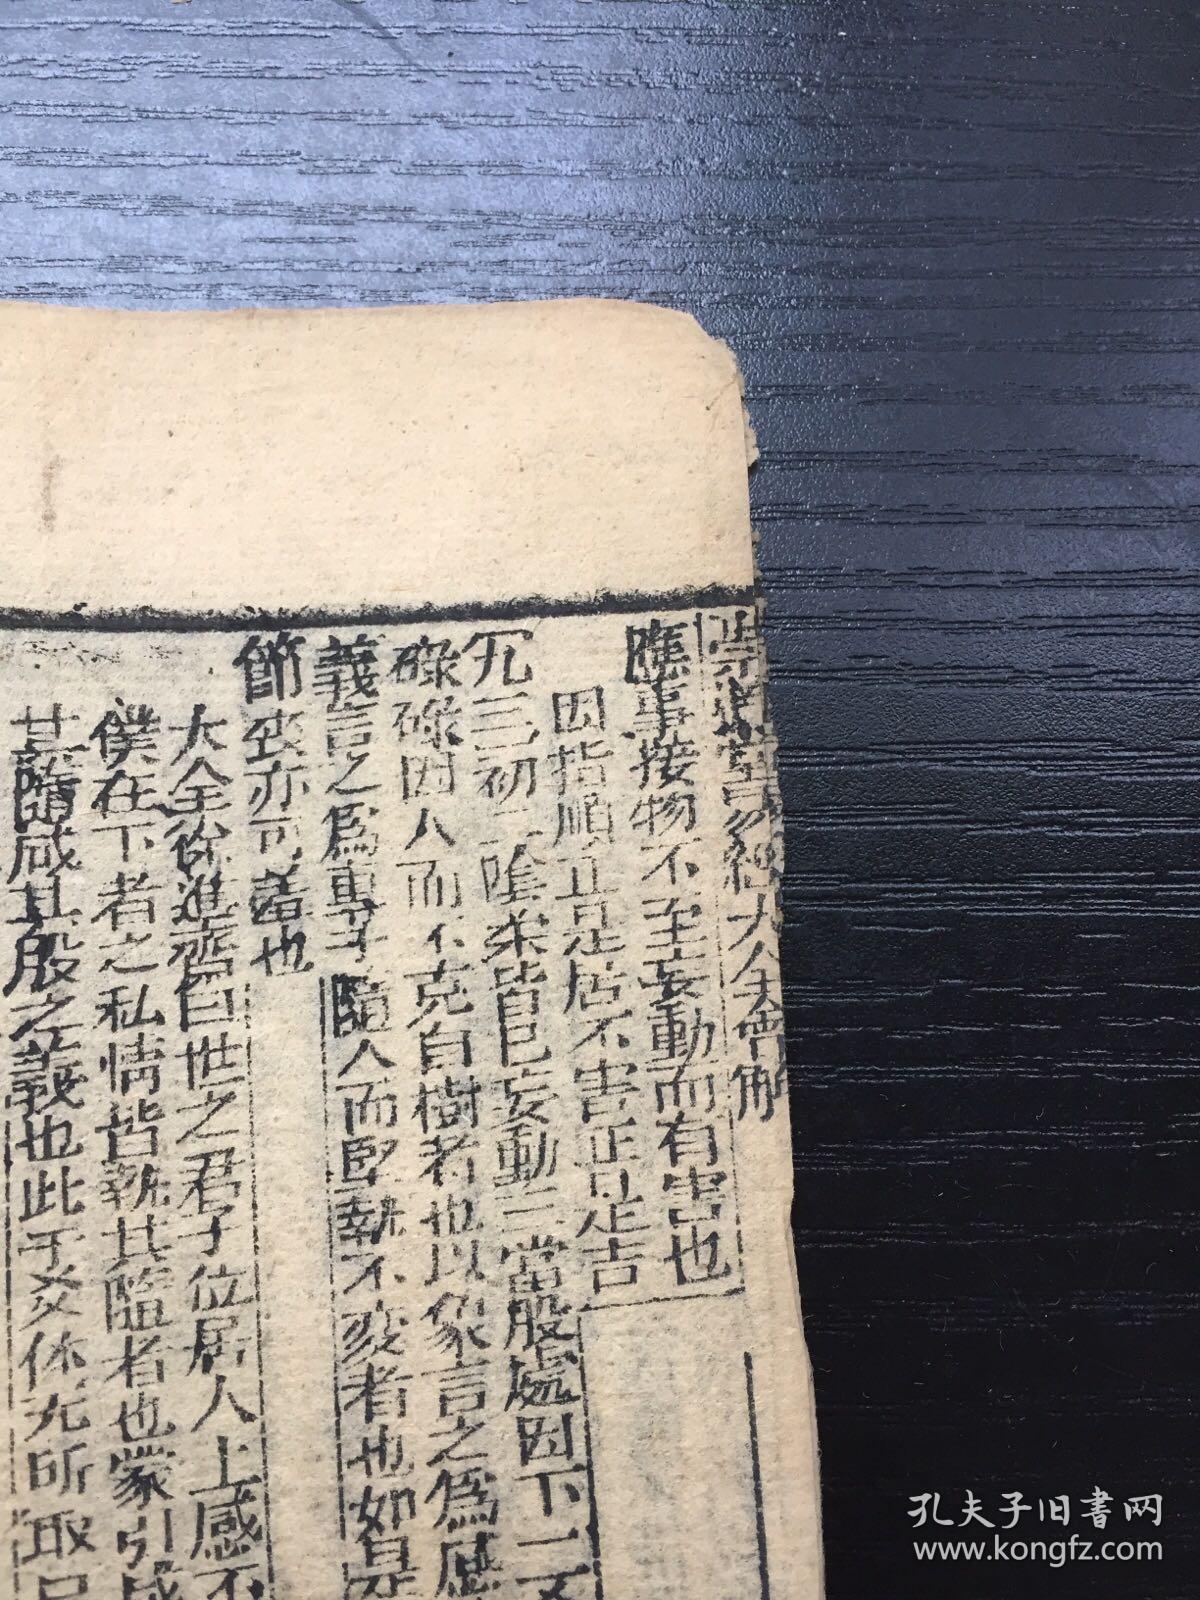 易經大全會解
應事接物不至妄動而有害也
因指順正是居不害正是吉
九三初二陰柔皆已妄動三當股處因下二爻
碌碌因人而不克自樹者也以象言之為咸
義言之為專于隨人而固執不変者也如是
節亦可羞也
大全徐進齋曰世之君子位居人上感不
僕在下者之私情皆執其隨者也蒙引咸
其隨咸其股之義也此于爻体无所取
孔夫子旧書网
www.kongfz.com